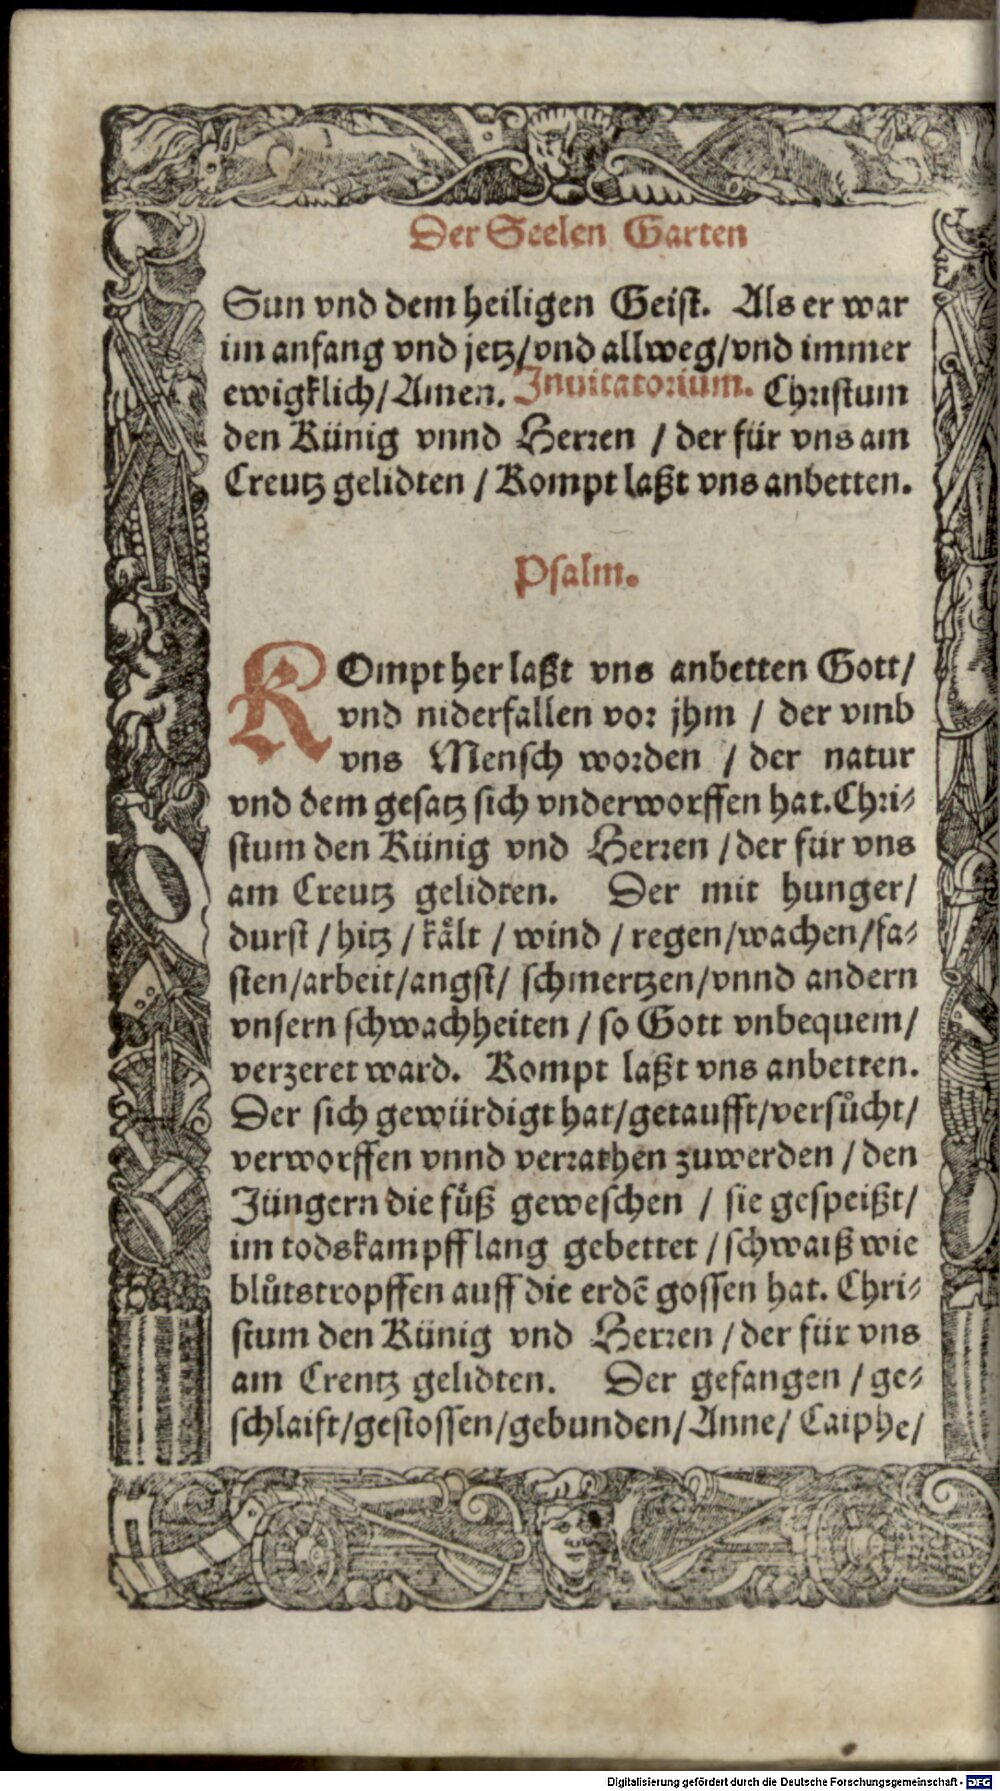 Der Seelen Garten
Sun vnd dem heiligen Geist. Als er war
im anfang vnd jetz/vnd allweg/vnd immer
ewigklich/Amen. Inuitatorium. Christum
den Künig vnnd Herren / der für vns am
Creutz gelidten / Kompt laßt vns anbetten.
Psalm.
KOmpt her laßt vns anbetten Gott/
vnd niderfallen vor jhm / der vmb
vns Mensch worden / der natur
vnd dem gesatz sich vnderworffen hat. Chri⸗
stum den Künig vnd Herren / der für vns
am Creutz gelidten. Der mit hunger/
durst / hitz / kaͤlt / wind / regen/wachen/fa⸗
sten/arbeit/angst/ schmertzen/vnnd andern
vnsern schwachheiten / so Gott vnbequem/
verzeret ward. Kompt laßt vns anbetten.
Der sich gewürdigt hat/getaufft/versuͦcht/
verworffen vnnd verrathen zuwerden / den
Jüngern die fuͤß geweschen / sie gespeißt/
im todskampff lang gebettet / schwaiß wie
bluͦtstropffen auff die erdē gossen hat. Chri⸗
stum den Künig vnd Herren / der für vns
am Crentz gelidten. Der gefangen / ge⸗
schlaift/gestossen/gebunden/Anne/ Caiphe/
Digitalisierung gefördert durch die Deutsche Forschungsgemeinschaft - DFG